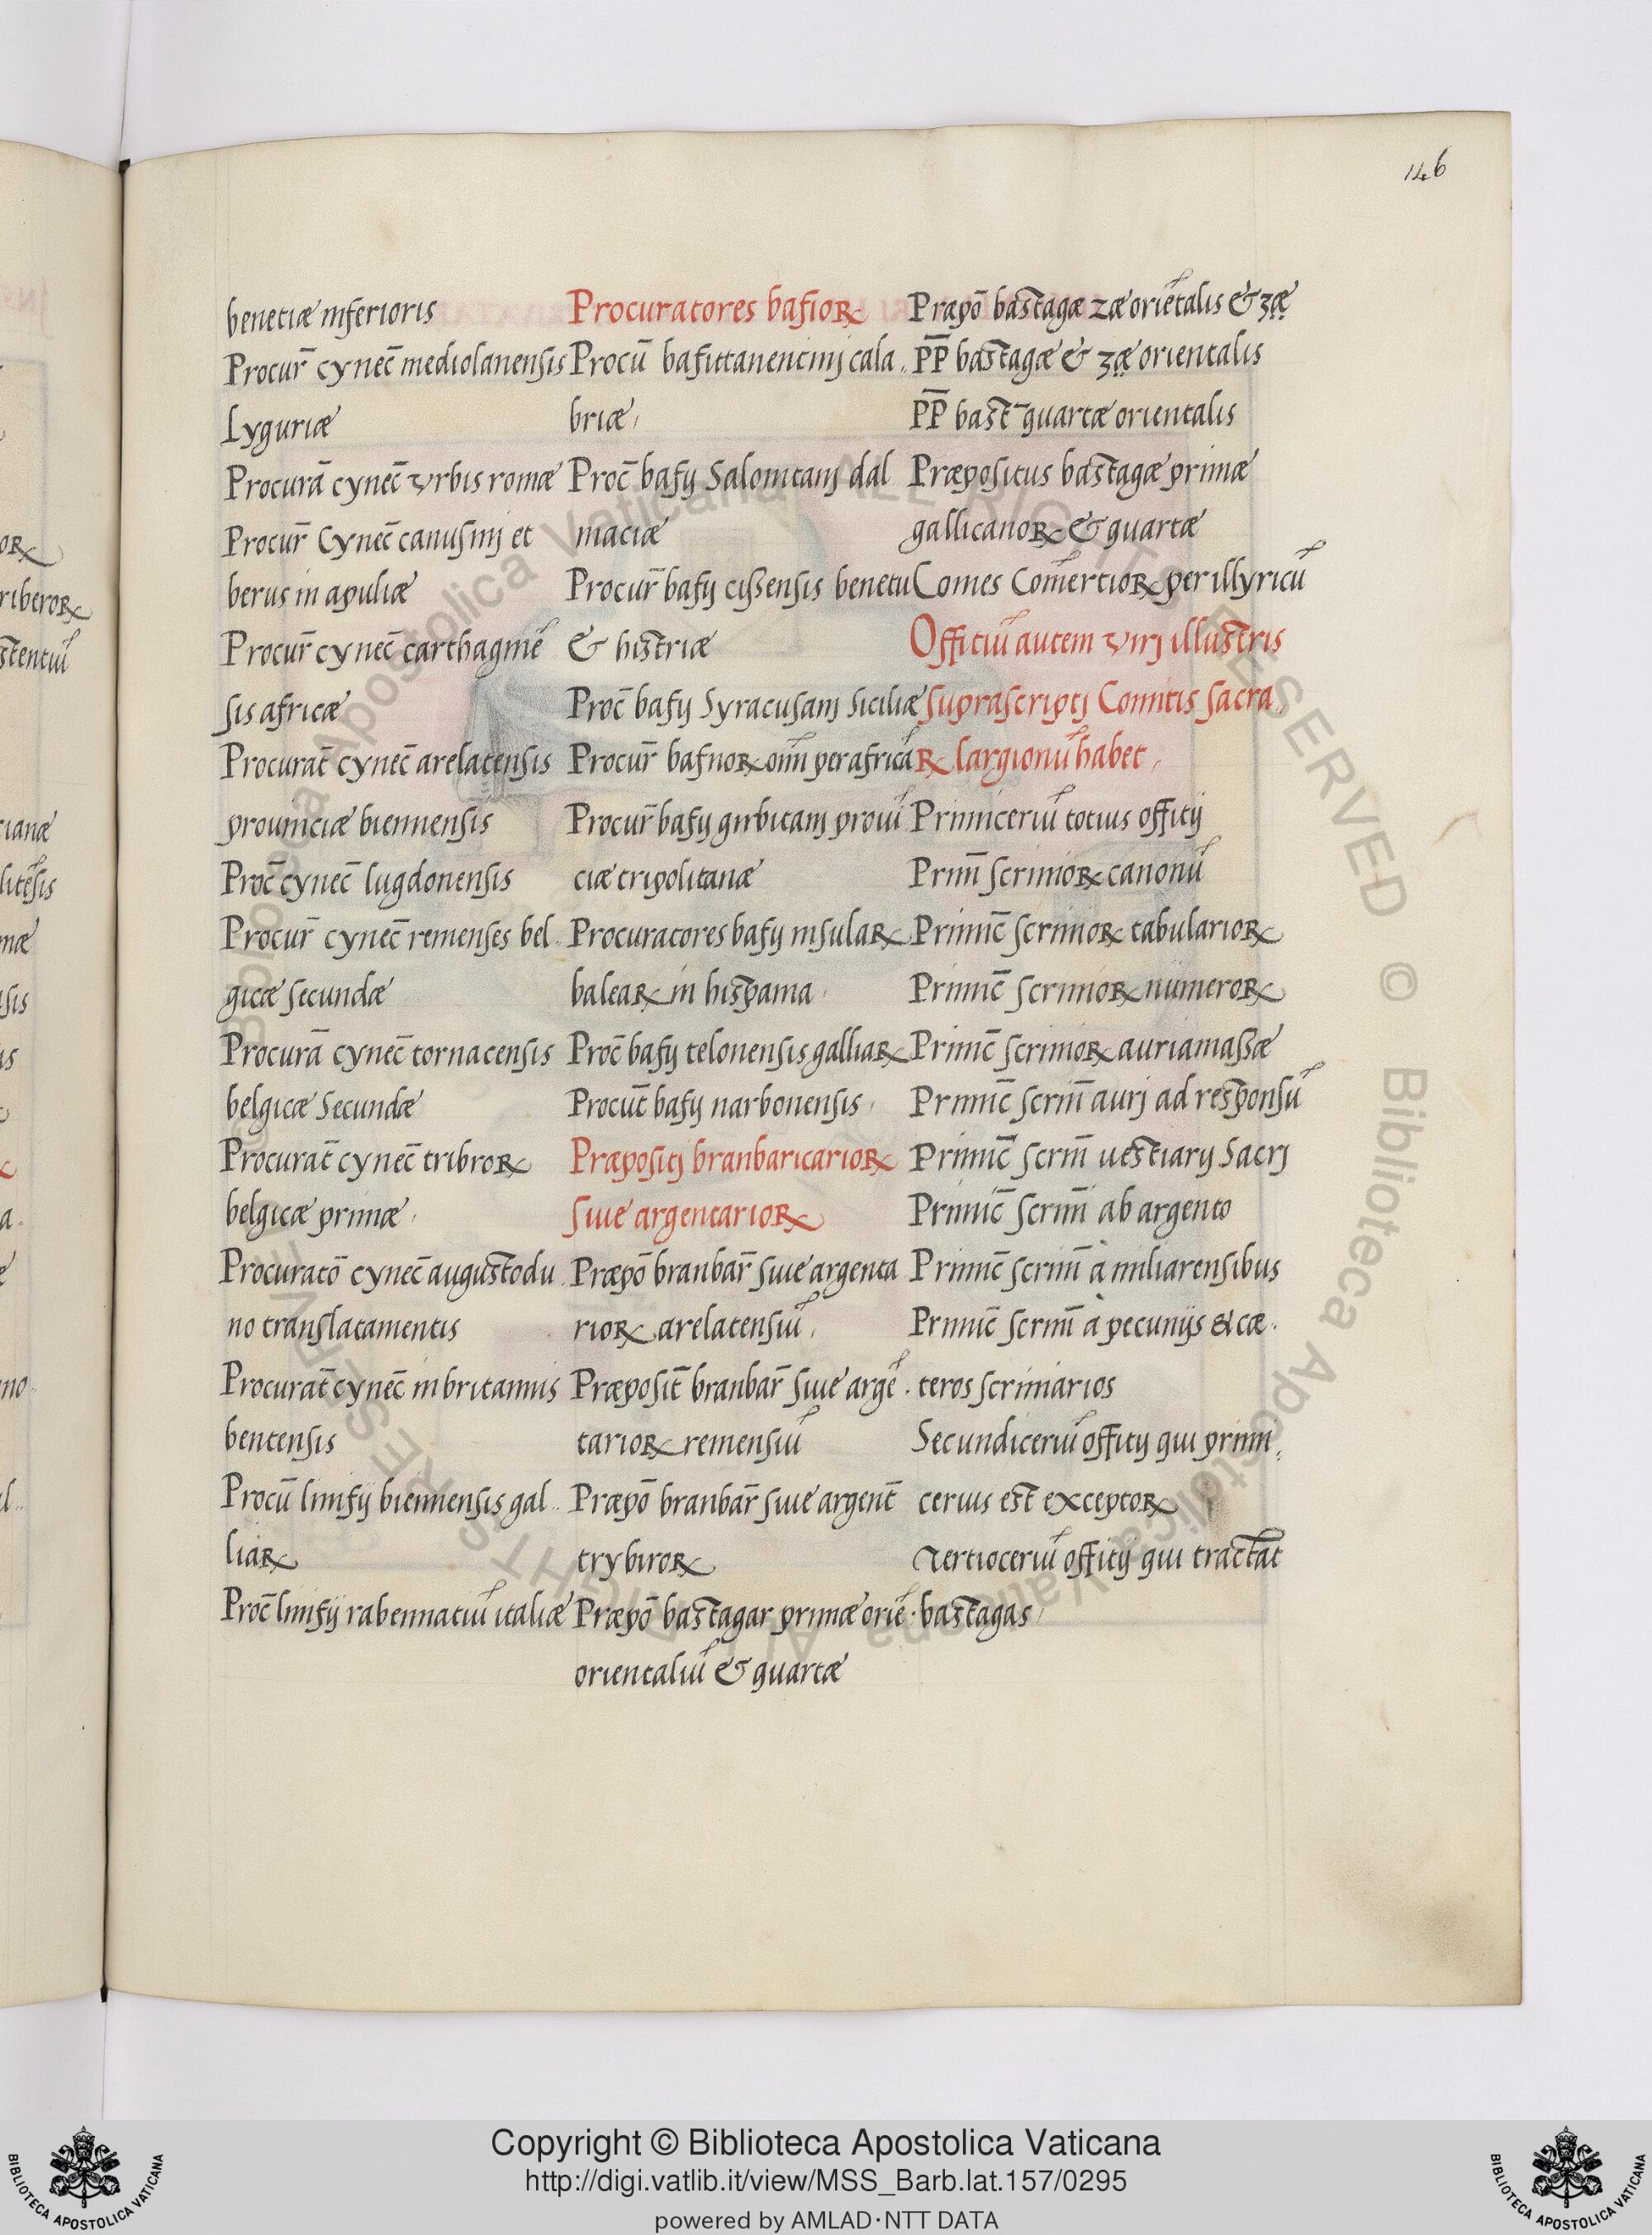 146
benetiæ inferioris
Procur̄ cynec̄ mediolanensis
Lyguriæ
Procurā cynec̄ vrbis romæ
Procur̄ Cynec̄ canusinj et
berus in apuliæ
Procur̄ cynec̄ carthaginē
sis africæ
Procurat̄ cynec̄ arelatensis
prouinciæ biennensis
Proc̄ cynec̄ lugdonensis
Procur̄ cynec̄ remenses bel
gicæ secundæ
Procurā cynec̄ tornacensis
belgicæ Secundæ
Procurat̄ cynec̄ tribroꝶ
belgicæ primæ
Procuratō cynec̄ augustodu
no translatamentis
Procurat̄ cynec̄ in britannis
bentensis
Procū linifij biennensis gal
liaꝶ
Proc̄ linifij rabennatiū italiæ
Procuratores bafioꝶ
Procū bafiitanentinj cala
briæ
Proc̄ bafij Salonitanj dal
maciæ
Procur̄ bafij cissensis benetu
& histriæ
Proc̄ bafij Syracusanj Siciliæ
Procur̄ bafnoꝶ oīm per africā
Procur̄ bafij girbitanj prouī
ciæ tripolitanæ
Procuratores bafij insulaꝶ
baleaꝶ in hispama
Proc̄ bafij telonensis galliaꝶ
Procut̄ bafij narbonensis
Præpositj branbaricarioꝶ
siue argentarioꝶ
Præpō branbar̄ siue argenta
rioꝶ arelatensiū
Præposit̄ branbar̄ siue argē
tarioꝶ remensiū
Præpō branbar̄ siue argent̄
trybiroꝶ
Præpō bastagar primæ oriē
orientaliū & quartæ
Præpō bastagæ zæ oriētalis & 3æ
P̄P̄ bastagæ & 3æ orientalis
P̄P̄ bast̄ quartæ orientalis
Præpositus bastagæ primæ
gallicanoꝶ & quartæ
Comes Comertioꝶ per illyricū
Offitiū autem virj illustris
suprascriptj Comitis sacra
ꝶ largionū habet
Primiceriū totius offitij
Prim̄ scrinioꝶ canonū
Primic̄ scrinioꝶ tabularioꝶ
Primic̄ scrinioꝶ numeroꝶ
Primic̄ scrinioꝶ auriamassæ
Primic̄ scrim̄ aurj ad responsū
Primic̄ scrim̄ uestiarij Sacrj
Primic̄ scrim̄ ab argento
Primic̄ scrim̄ à miliarensibus
Primic̄ scrim̄ à pecunijs & cæ
teros scriniarios
Secundiceriū offitij qui primi
cerius est exceptoꝶ
Tertioceriū offitij qui tractat
bastagas
Copyright © Biblioteca Apostolica Vaticana
http://digi.vatlib.it/view/MSS_Barb.lat.157/0295
powered by AMLAD·NTT DATA